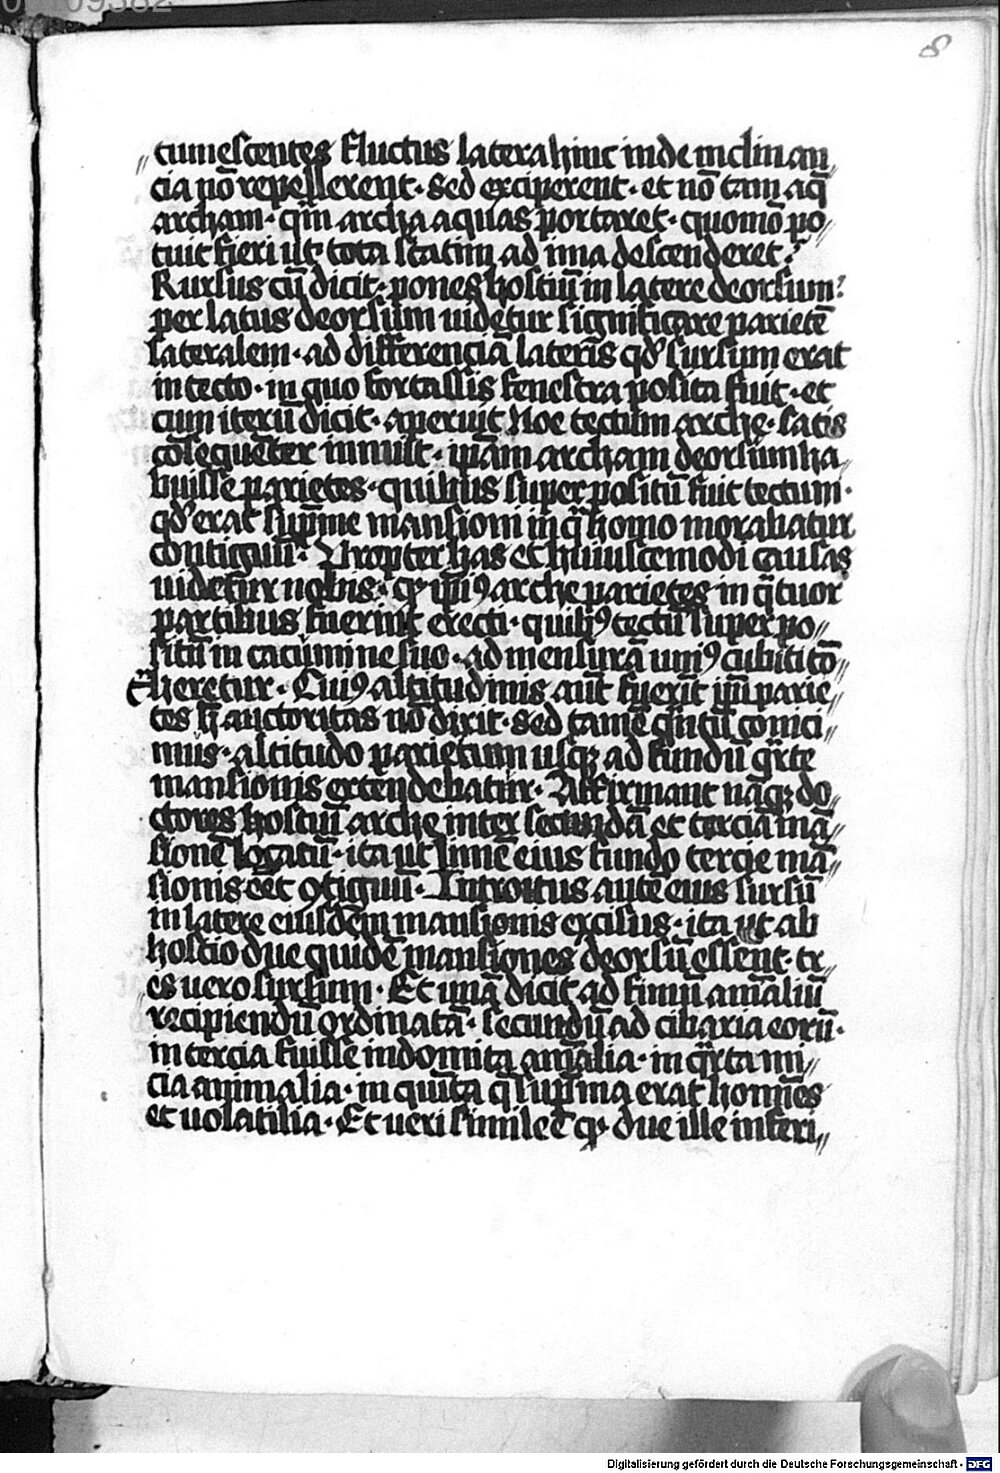 8
tumescentes fluctus latera hinc inde inclinan„
cia nō repellerent · sed exciperent · et nō tam aq̄
archam · qm̄ archa aquas portaret · quomō po„
tuit fieri ut tota statim ad ima descenderet ·
Rursus cū dicit · pones hostiū in latere deorsum?
per latus deorsum uidetur significare parietē
lateralem · ad differenciā lateris qd' sursum erat
in tecto · in quo fortassis fenestra posita fuit · et
cum iterū dicit · aperuit Noe tectum arche · satis
cōsequēter innuit · ipam archam deorsum ha„
buisse parietes · quibus super positū fuit tectum ·
qd' erat supme mansioni in q̄ homo morabatur
contiguū · Propter has et huiuscemodi causas
uidetur nobis · qꝫ ipiꝰ arche parietes in q̄tuor
partibus fuerint erecti · quibꝰ tectū super po„
sitū in cacumine suo · ad mensurā uniꝰ cubiti cō„
traheretur · Cuiꝰ altitudinis aut fuerit ipi parie„
tes h̄ auctoritas nō dixit · sed tamē q̄ntū conici„
mus · altitudo parietum usqꝫ ad fundū q̄rte
mansionis extendebatur · Affirmant nāqꝫ do„
ctores hostiū arche inter secundā et terciā mā„
sionē locatū · ita ut limē eius fundo tercie mā„
sionis eēt ꝯtiguū · Introitus autē eius sursū
in latere eiusdem mansionis excisus · ita ut ab
hostio due quidē mansiones deorsū essent · tr„
es uero sursum · Et unā dicit ad fimū aīalium
recipiendū ordinatā · secundū ad cibaria eorū ·
in tercia fuisse indomita aīalia · in q̄rta mi„
cia animalia · in quīta q̄ supma erat homēs
et uolatilia · Et ueri simile ē qꝫ due ille inferi„
Digitalisierung gefördert durch die Deutsche Forschungsgemeinschaft - DFG